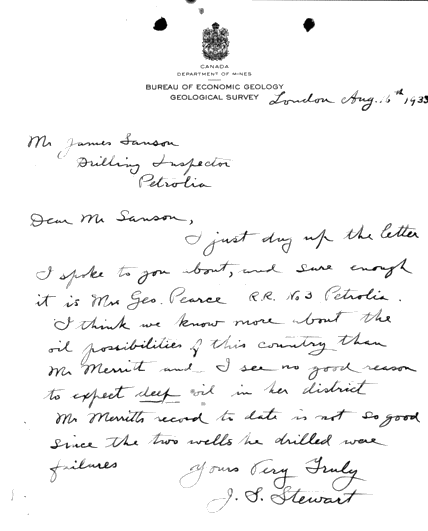 CANADA
DEPARTMENT OF MINES
BUREAU OF ECONOMIC GEOLOGY
GEOLOGICAL SURVEY
London Aug. 16th 1933
Mr James Sanson
Drilling Inspector
Petrolia
Dear Mr Sanson,
I just dug up the letter
I spoke to you bout, and sure enough
it is Mrs Geo. Pearce R.R. No 3 Petrolia.
I think we know more about the
oil possibilities of this country than
Mr Merritt and I see no good reason
to expect deep oil in her district
Mr Merritts record to date is not so good
since the two wells he drilled were
failures
Yours Very Truly
J. S. Stewart